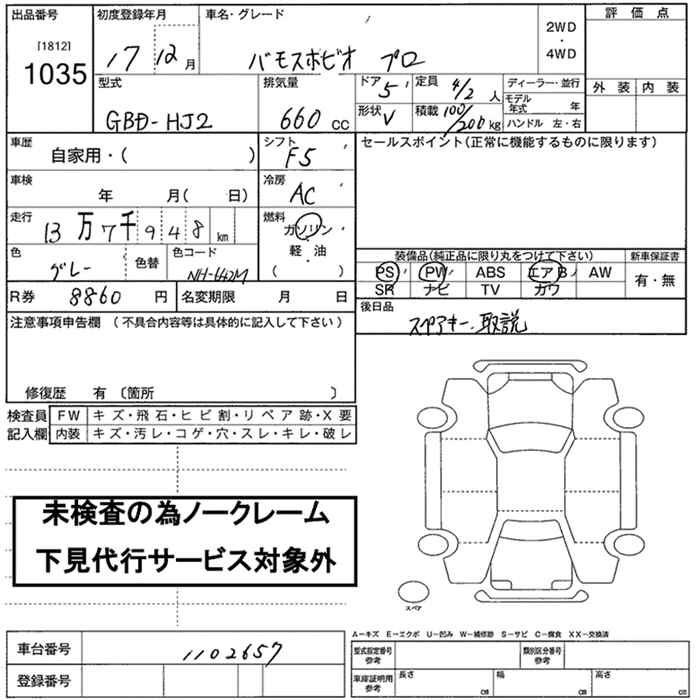 出品番号 初度登録年月 車名・グレード 評価点
[1812]
1035
17 12月 バモスホビオ プロ
2WD
・
4WD
外装 内装
型式 排気量 ドア 5 定員 4/2 人 ディーラー・並行
モデル年式 年
GBD-HJ2 660cc 形状 V 積載 100/200kg ハンドル 左・右
車歴 自家用・( ) シフト F5 セールスポイント(正常に機能するものに限ります)
車検 年 月( 日) 冷房 AC
走行 13万7千948km 燃料 ガソリン
・
軽・油
・
( )
色 グレー 色替 色コード NH-642M
装備品(純正品に限り丸をつけて下さい) 新車保証書
PS PW ABS エアB AW 有・無
SR ナビ TV カワ
R券 8860円 名変期限 月 日
後日品
スペアキー、取説
注意事項申告欄(不具合内容等は具体的に記入して下さい)
修復歴 有〔箇所 〕
検査員 FW キズ・飛石・ヒビ割・リペア跡・X要
記入欄 内装 キズ・汚レ・コゲ・穴・スレ・キレ・破レ
未検査の為ノークレーム
下見代行サービス対象外
スペア
A-キズ E-エクボ U-凹み W-補修跡 S-サビ C-腐食 XX-交換済
車台番号 1102657
登録番号
型式指定番号 参考 類別区分番号 参考
車庫証明用 参考 長さ cm 幅 cm 高さ cm